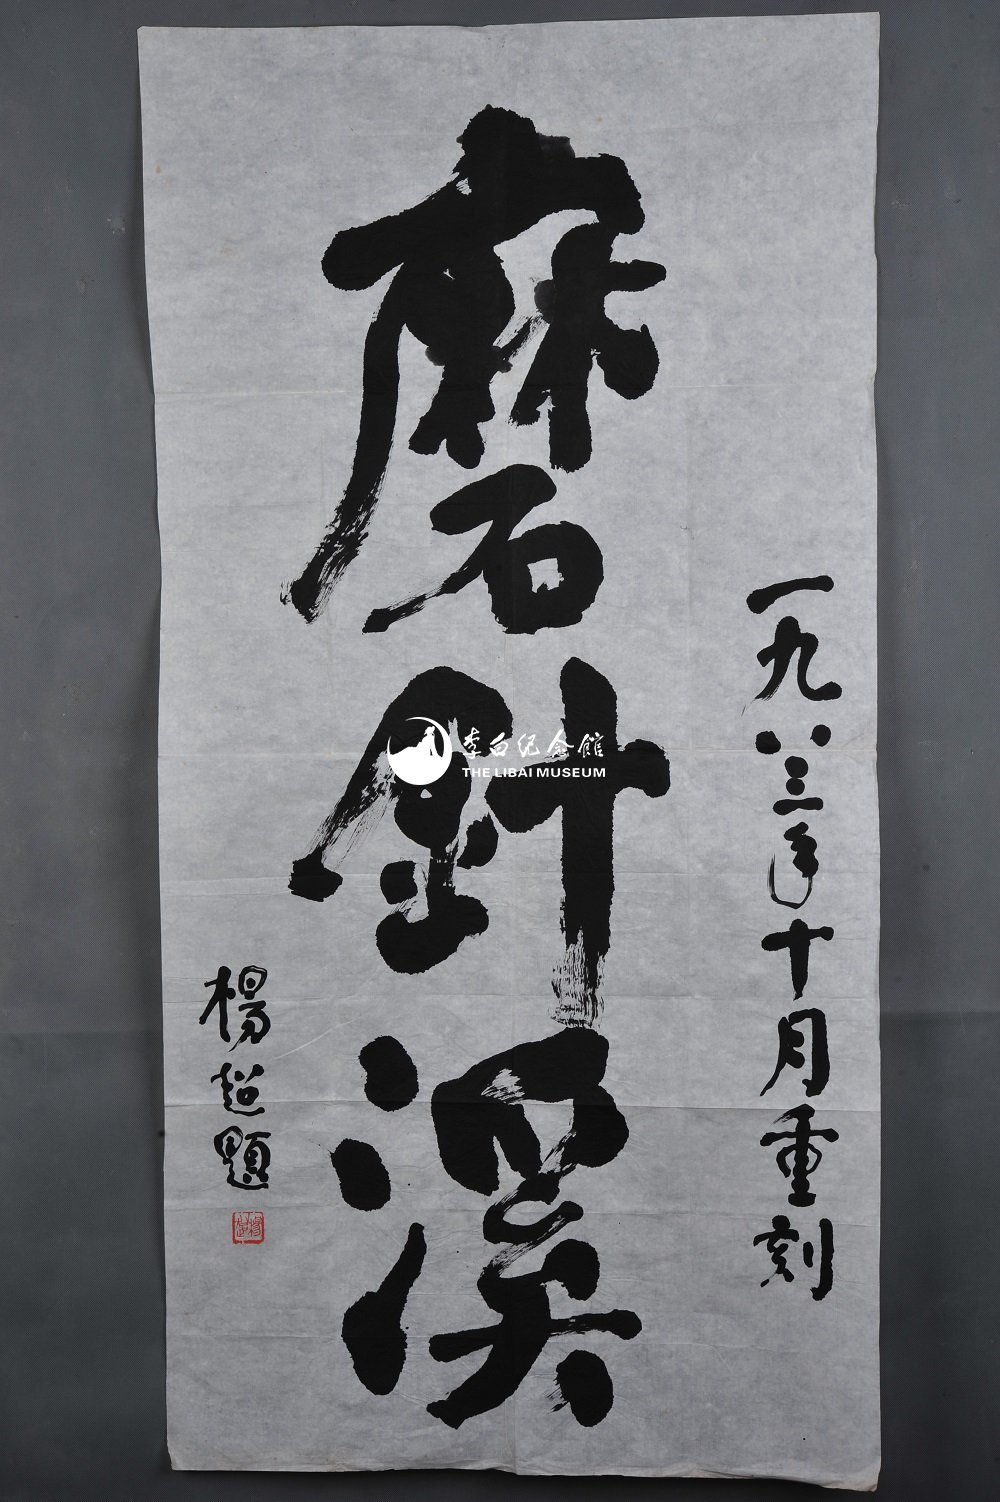 一九八三年十月重刻
磨針溪
楊超題
李白纪念馆
THE LIBAI MUSEUM